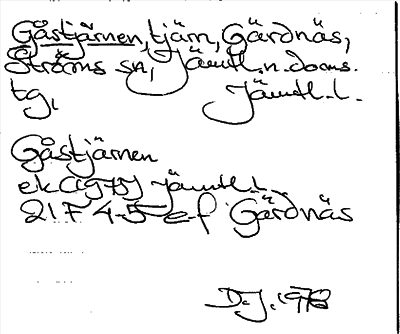 Gåstjärnen, tjärn, Gärdnäs,
Ströms sn, Jämtl. n. doms.
tg, Jämtl. l.
Gåstjärnen
ek (1975) Jämtl. l.
21F 4-5 e-f Gärdnäs
D.J. 1978